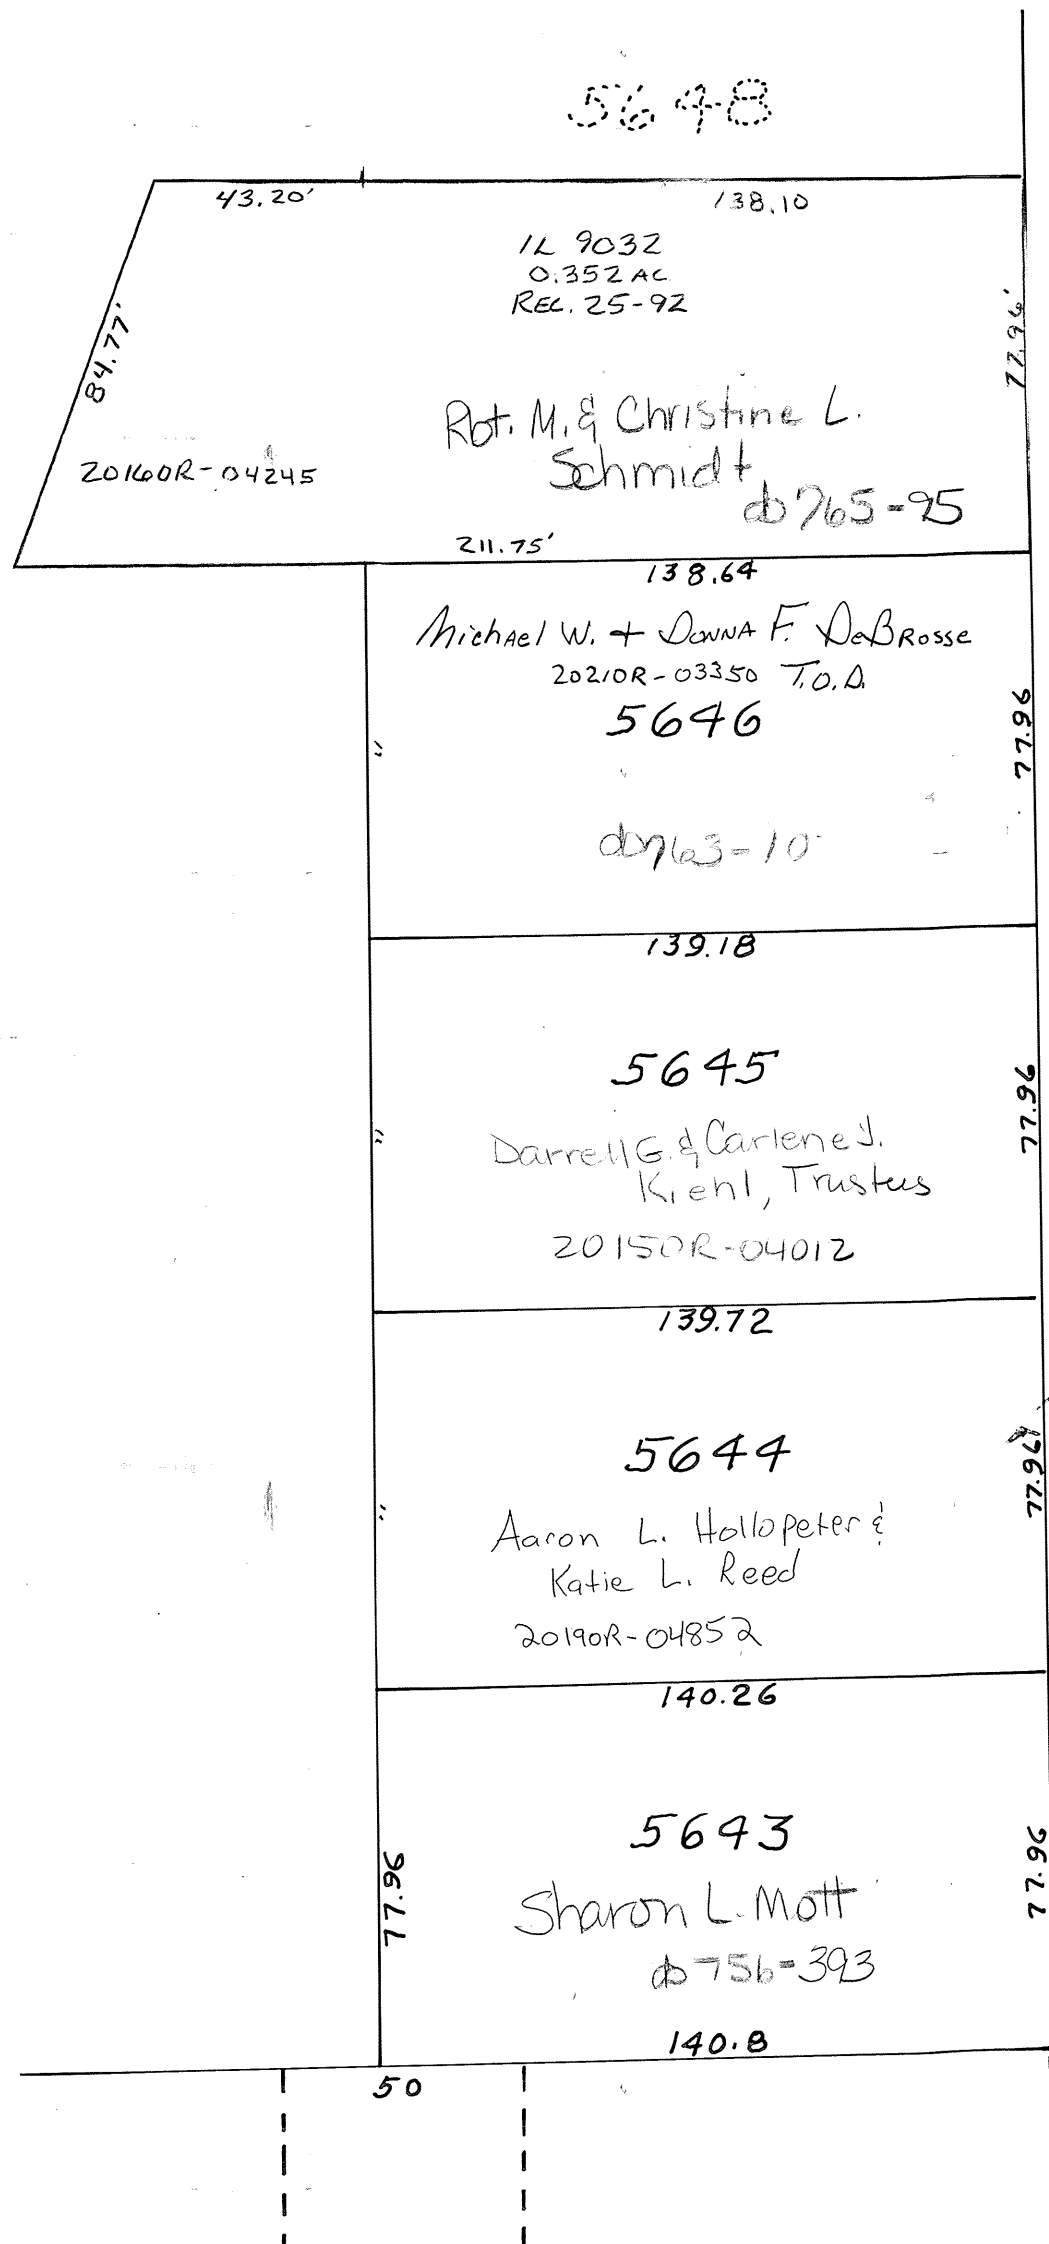 5648
43.20'
138.10
IL 9032
0.352 AC
REC. 25-92
84.77'
77.96'
Rbt. M. & Christine L.
Schmidt
20160R-04245
db 765-95
211.75'
138.64
Michael W. + DONNA F. DeBROSSE
20210R-03350 T.O.D.
5646
"
77.96
db763-10
139.18
5645
77.96
"
Darrell G. & Carlene J.
Kiehl, Trustees
20150R-04012
139.72
5644
77.96
"
Aaron L. Hollopeter &
Katie L. Reed
20190R-04852
140.26
5643
77.96
77.96
Sharon L. Mott
db 756-393
140.8
50